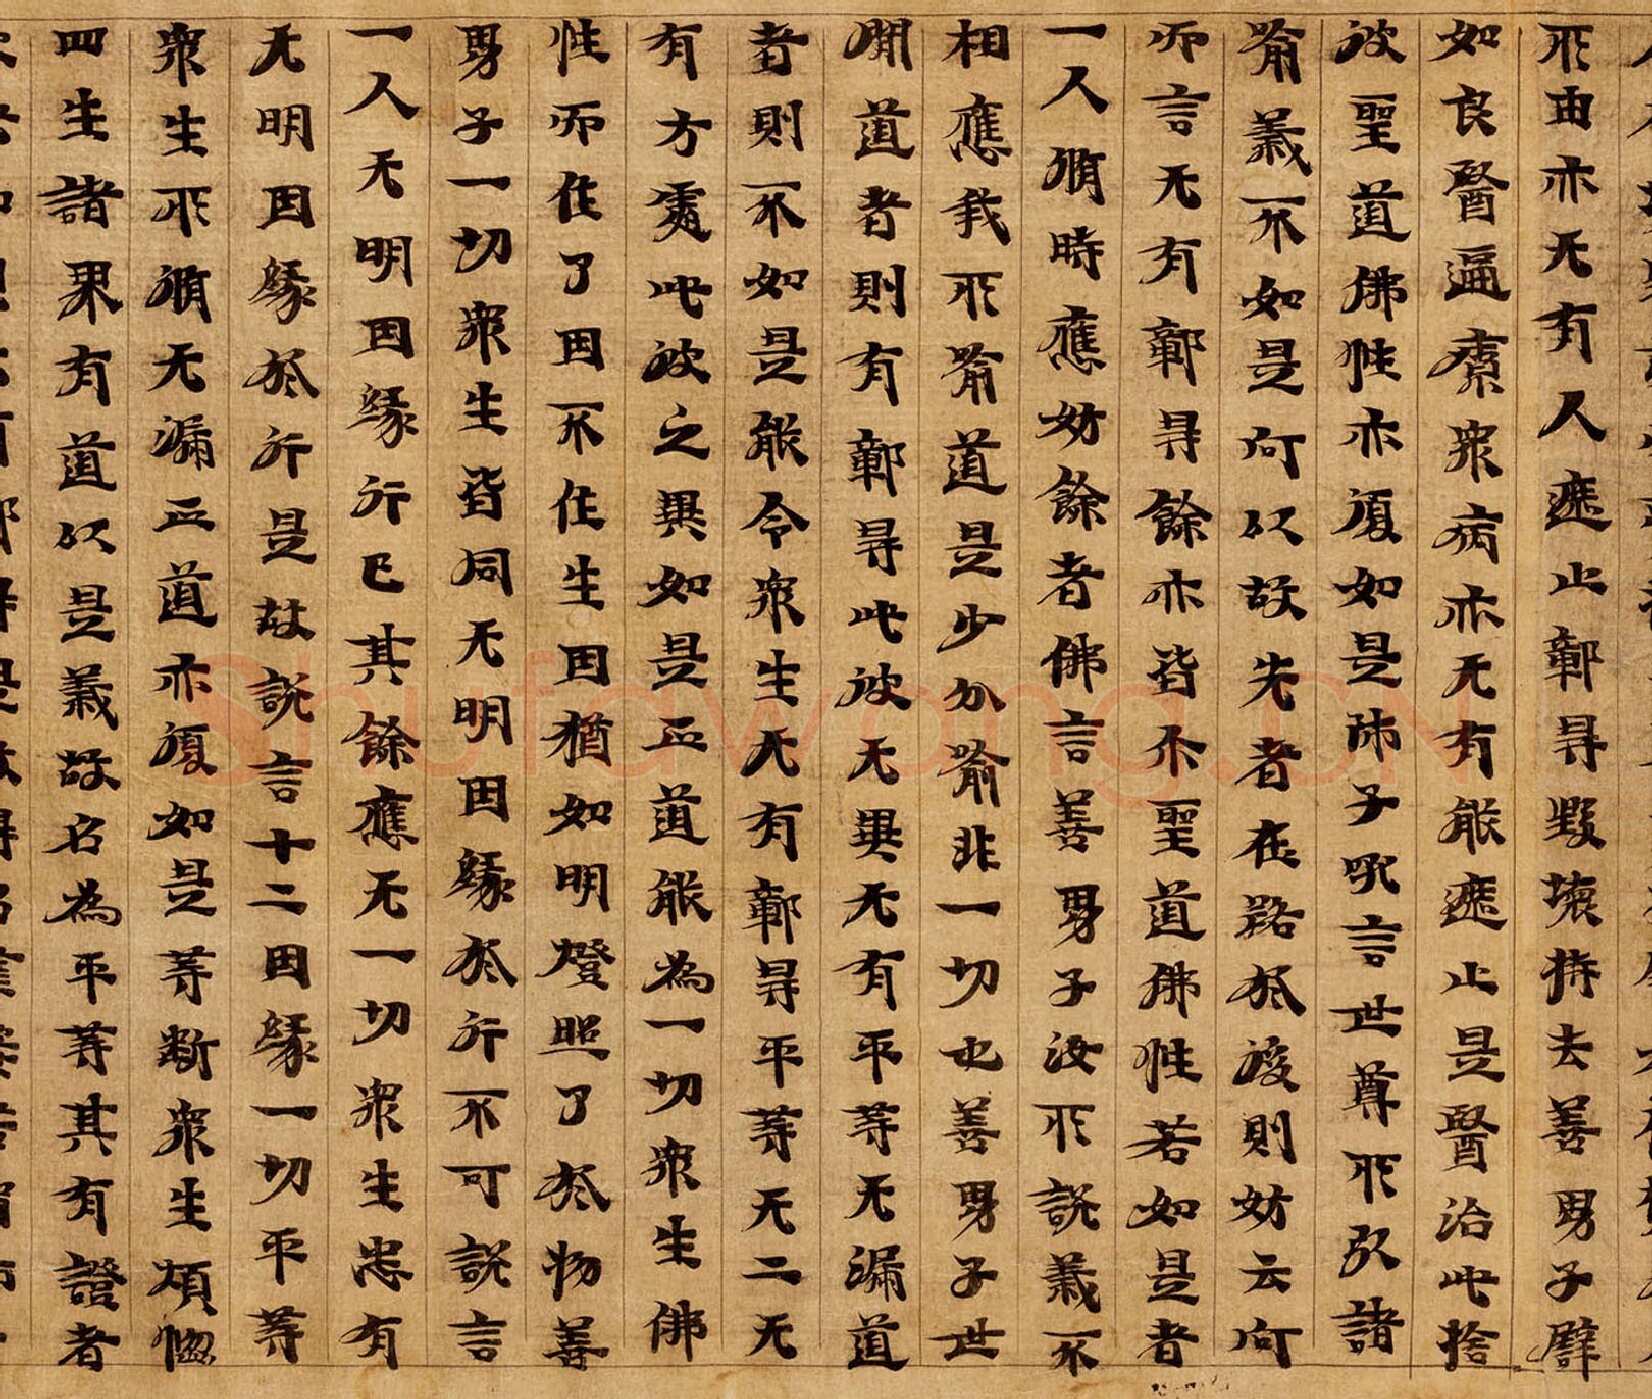 所由亦无有人遮止鄣㝵毀壞持去善男子譬
如良醫遍療衆病亦无有能遮止是醫治此捨
彼聖道佛性亦復如是師子吼言世尊所引諸
喻義不如是何以故先者在路於後則妨云何
而言无有鄣㝵餘亦皆尒聖道佛性若如是者
一人脩時應妨餘者佛言善男子汝所說義不
相應我所喻道是少分喻非一切也善男子世
間道者則有鄣㝵此彼无異无有平等无漏道
者則不如是能令衆生无有鄣㝵平等无二无
有方處此彼之異如是正道能為一切衆生佛
性而作了因不作生因猶如明燈照了於物善
男子一切衆生皆同无明因緣於行不可說言
一人无明因緣行已其餘應无一切衆生悉有
无明因緣於行是故說言十二因緣一切平等
衆生所脩无漏正道亦復如是等斷衆生煩惱
四生諸果有道以是義故名為平等其有證者
Shufawang.CN